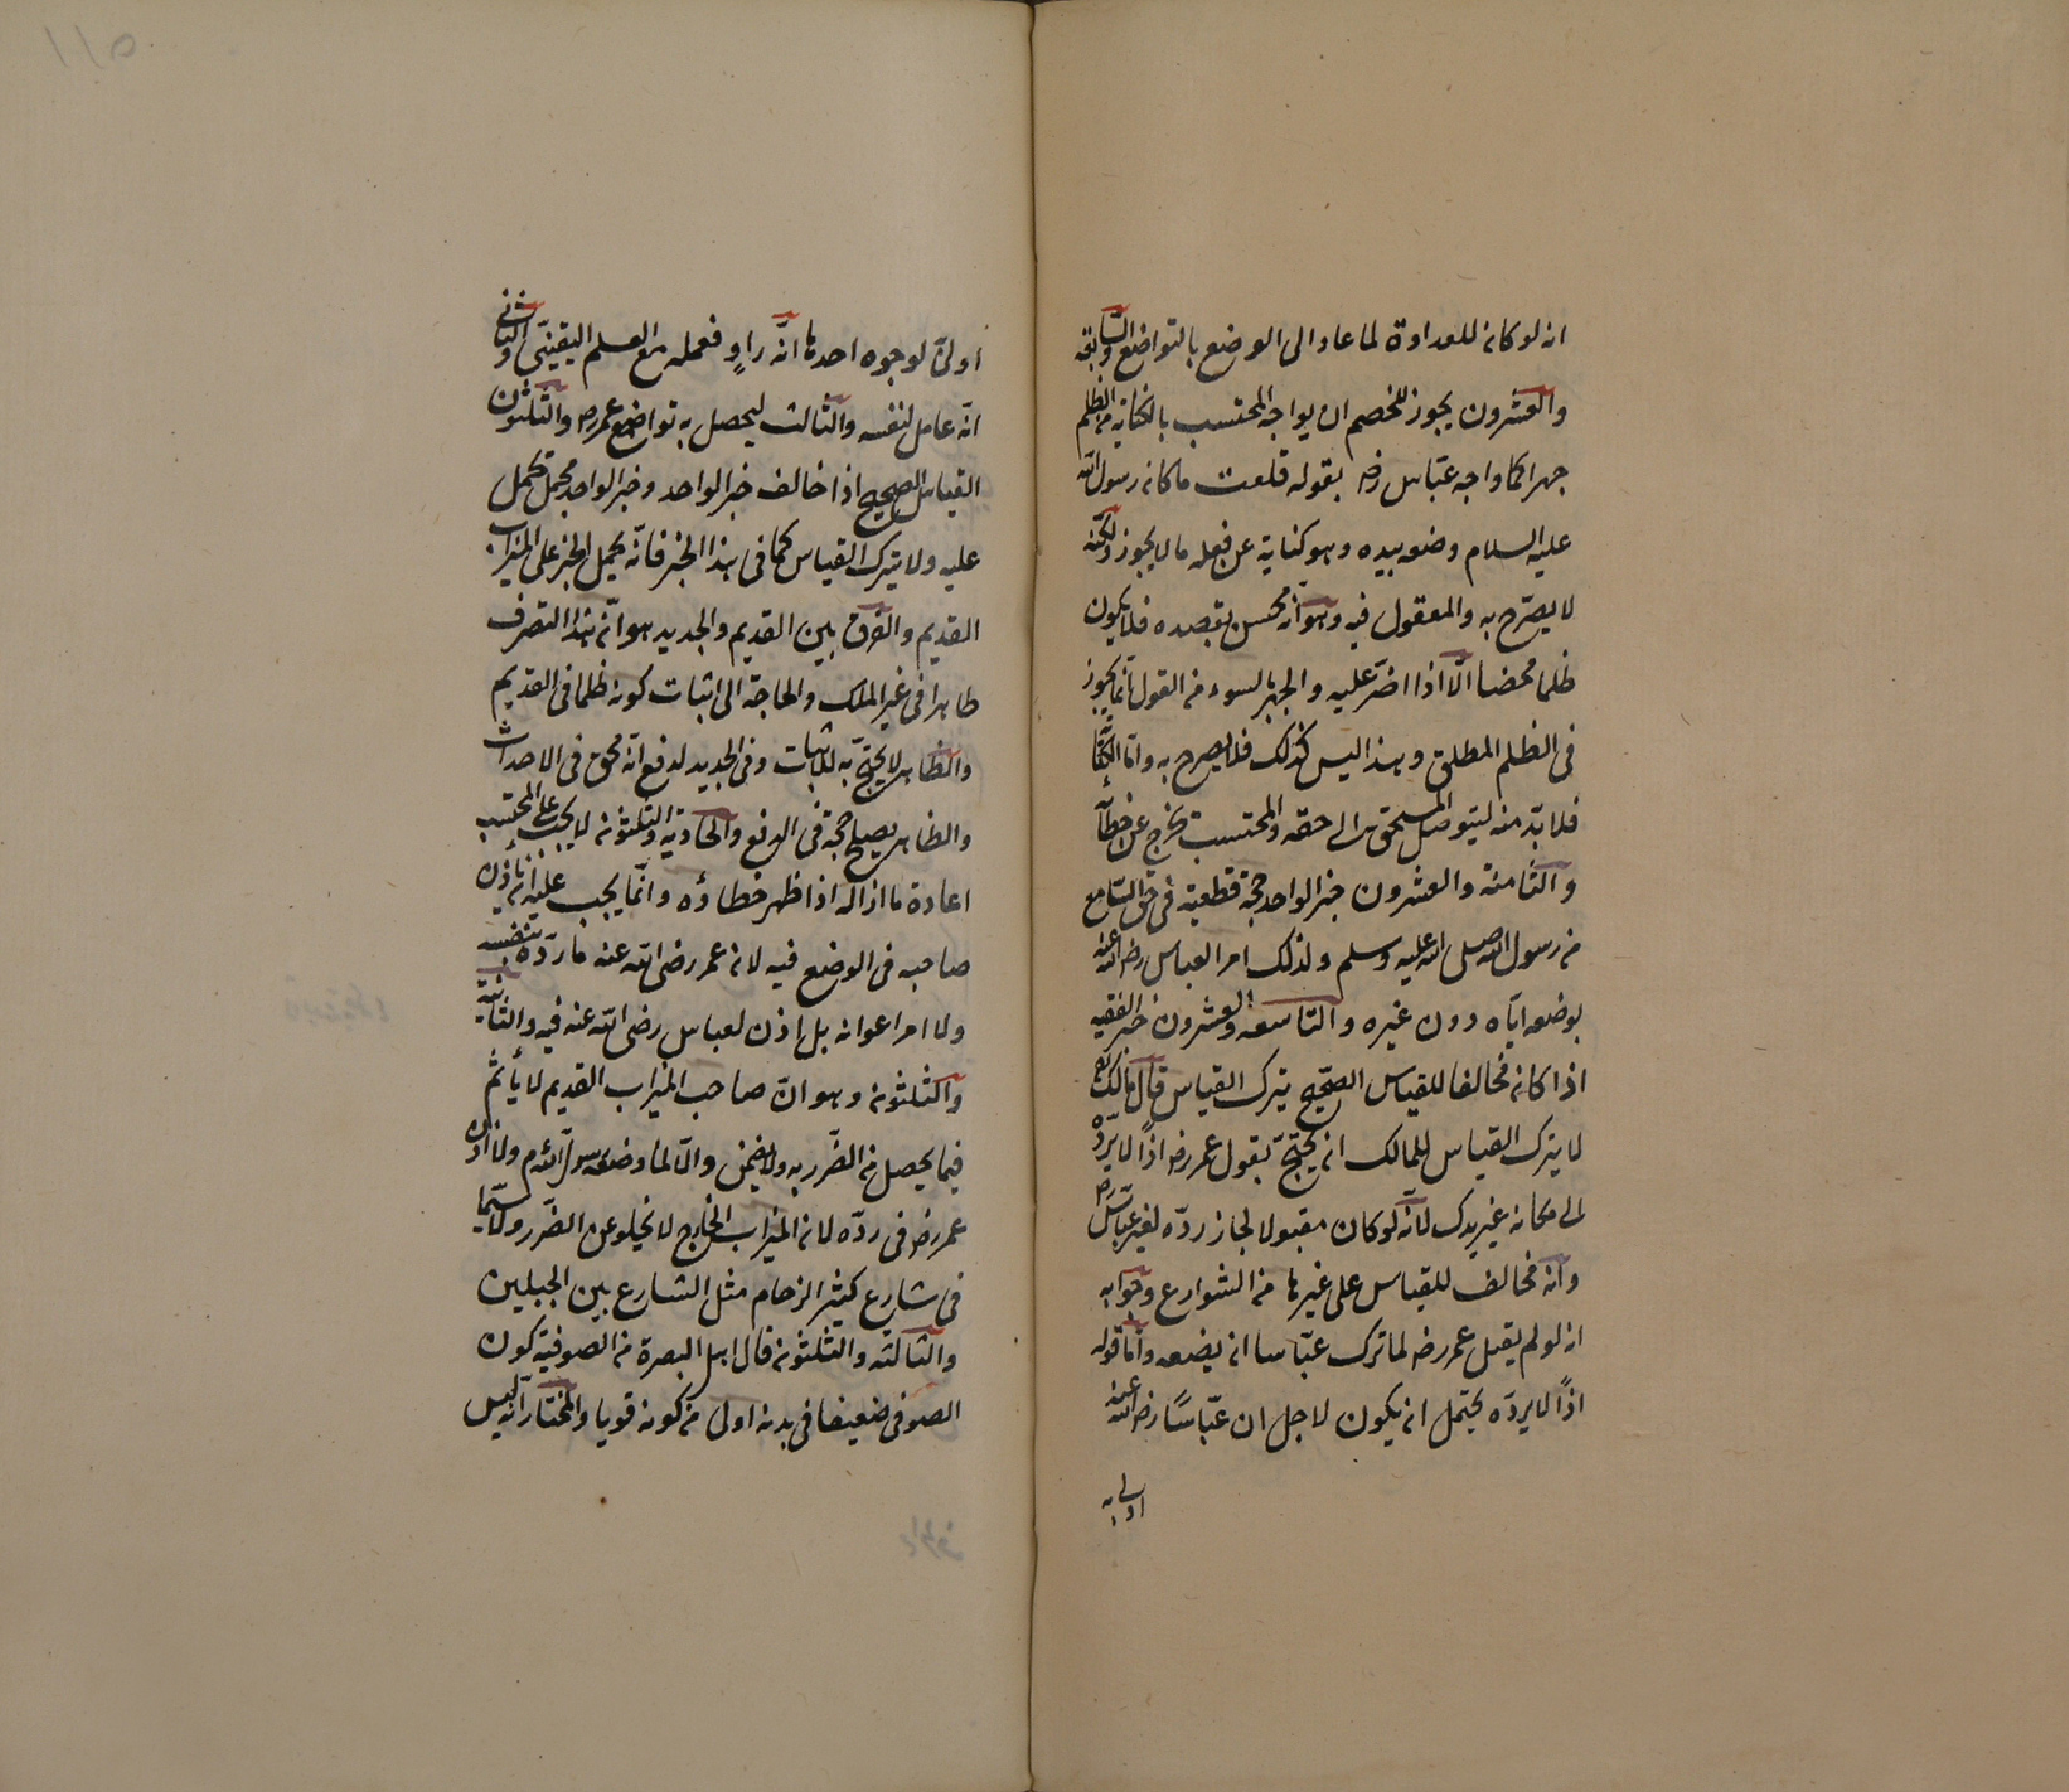 انه لو كانه للعداوة لما عاد الى الوضع بالتواضع والسابعة
والعشرون يجوز للخصم ان يواجه المحتسب بالكناية من الظلم
جهرا كما واجه عبّاس رضـ بقوله قلعت ما كانه رسول الله
عليه السلام وضعه بيده وهو كناية عن فعله ما لا يجوز ولكنه
لا يصرّح به والمعقول فيه وهو انه محسن بقصده فلا يكون
ظلما محضا الّا اذا اضرّ عليه والجهر بالسوء من القول انّما يجوز
فى الظلم المطلق وهذا ليس كذلك فلا يصرح به وامّا
فلا بدّ منه ليتوصل المستحق الى حقه والمحتسب يخرج عن خطأ
والثامنة والعشرون خبر الواحد حجة قطعية فى حق السّامع
من رسول الله صلى الله عليه وسلم ولذلك امر العباس رضى الله عنه
بوضعه ايّاه دون غيره والتاسعة والعشرون خبر الفقيه
اذا كانه مخالفا للقياس الصحيح يترك القياس قال مالك
لا يترك القياس للمالك انه يحتجّ بقول عمر رضـ اذًا لا يردّه
الى مكانه غير يدك لانّه لو كان مقبولا لجاز ردّه لغير عبّاس رضـ
وانه مخالف للقياس على غيرها من الشوارع وجوابه
انه لو لم يقبل عمر رضـ لما ترك عبّاسا انه يضعه وامّا قوله
اذًا لا يردّه يحتمل انه يكون لاجل ان عبّاسًا رضى الله عنه
اولى به
اولى لوجوه احدها انّه راوٍ فعمله مع العلم اليقينىّ والثانى
انّه عامل لنفسه والثالث ليحصل به تواضع عمر رضـ والثلثون
القياس الصحيح اذا خالف خبر الواحد وخبر الواحد مجمل يحمل
عليه ولا يترك القياس كما فى هذا الخبر فانّه يحمل الخبر على الميزاب
القديم والفرق بين القديم والجديد هو انّه هذا التصرف
ظاهرا فى غير الملك والحاجة الى اثبات كونه ظلما فى القديم
والظاهر لا يحتجّ به للاثبات وفى الجديد لدفع انّه محق فى الاحداث
والظاهر يصلح حجة فى الدفع والحادية والثلثونه لا يجب على المحتسب
اعادة ما ازاله اذا ظهر خطاؤه وانّما يجب عليه انه يأذن
صاحبه فى الوضع فيه لانه عمر رضى الله عنه ما ردّه بنفسه
ولا امر اعوانه بل اذن لعباس رضى الله عنه فيه والثانية
والثلثونه وهو انّ صاحب الميزاب القديم لا يأثم
فيما يحصل من الضّرر به ولا يضمن والّا لما وضعه رسول الله م ولما اذن
عمر رضـ فى ردّه لانه الميزاب الخارج لا يخلو عن الضّرر ولا سيّما
فى شارع كثير الزحام مثل الشارع بين الجبلين
والثالثه والثلثونه قال اهل البصرة من الصوفية كون
الصوفى ضعيفا فى بدنه اولى من كونه قويا والمختار انّه ليس